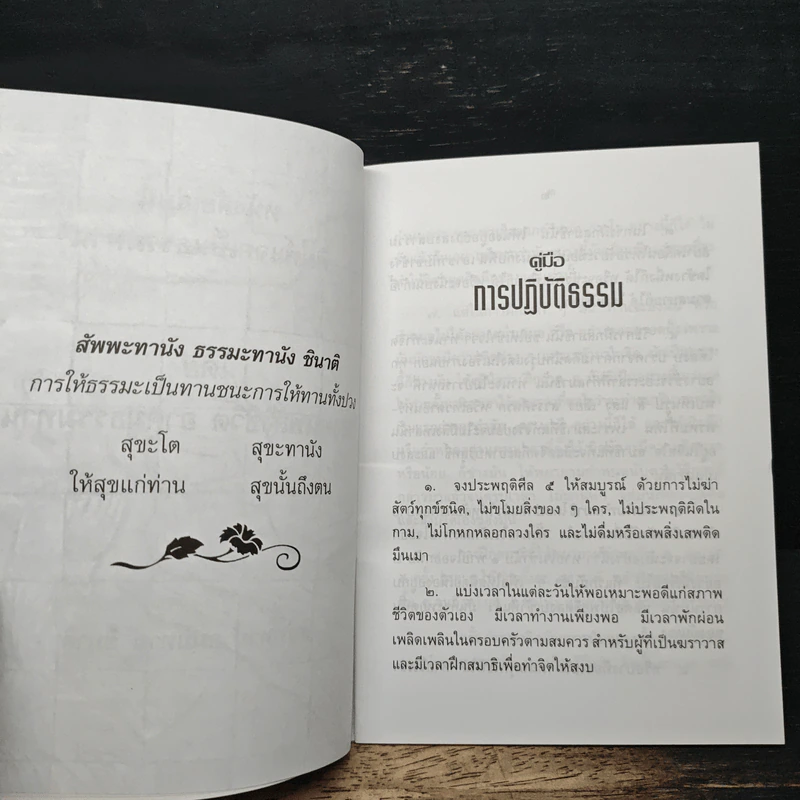 สัพพะทานัง ธรรมะทานัง ชินาติ
การให้ธรรมะเป็นทานชนะการให้ทานทั้งปวง
สุขะโต สุขะทานัง
ให้สุขแก่ท่าน สุขนั้นถึงตน
คู่มือ
การปฏิบัติธรรม
๑. จงประพฤติศีล ๕ ให้สมบูรณ์ ด้วยการไม่ฆ่า
สัตว์ทุกข์ชนิด, ไม่ขโมยสิ่งของ ๆ ใคร, ไม่ประพฤติผิดใน
กาม, ไม่โกหกหลอกลวงใคร และไม่ดื่มหรือเสพสิ่งเสพติด
มึนเมา
๒. แบ่งเวลาในแต่ละวันให้พอเหมาะพอดีแก่สภาพ
ชีวิตของตัวเอง มีเวลาทำงานเพียงพอ มีเวลาพักผ่อน
เพลิดเพลินในครอบครัวตามสมควร สำหรับผู้ที่เป็นฆราวาส
และมีเวลาฝึกสมาธิเพื่อทำจิตให้สงบ